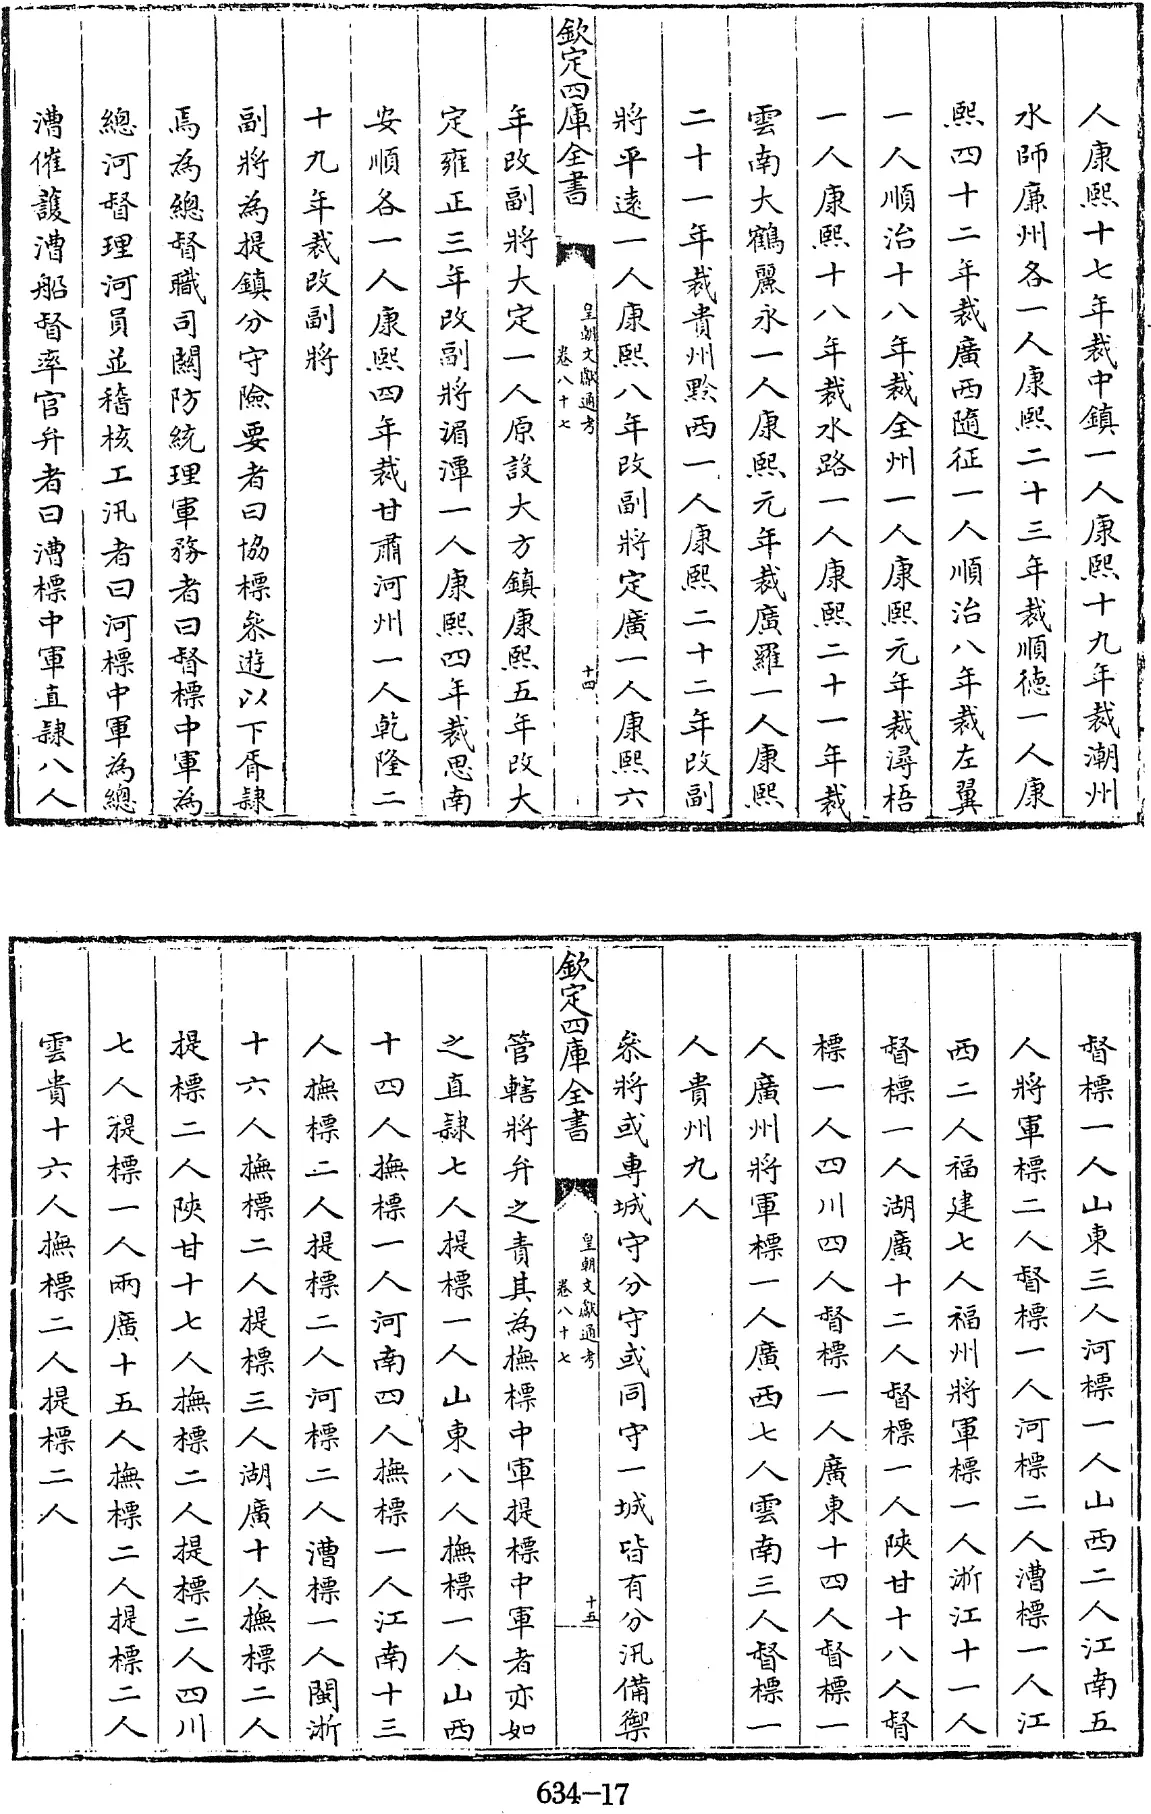 人康熙十七年裁中鎮一人康熙十九年裁潮州
水師廉州各一人康熙二十三年裁順德一人康
熙四十二年裁廣西隨征一人順治八年裁左翼
一人順治十八年裁全州一人康熙元年裁潯梧
一人康熙十八年裁水路一人康熙二十一年裁
雲南大鶴麗永一人康熙元年裁廣羅一人康熙
二十一年裁貴州黔西一人康熙二十二年改副
將平遠一人康熙八年改副將定廣一人康熙六
欽定四庫全書
皇朝文獻通考
卷八十七
十四
年改副將大定一人原設大方鎮康熙五年改大
定雍正三年改副將湄潭一人康熙四年裁思南
安順各一人康熙四年裁甘肅河州一人乾隆二
十九年裁改副將
副將為提鎮分守險要者曰協標叅遊以下胥隸
焉為總督職司關防統理軍務者曰督標中軍為
總河督理河員並稽核工汛者曰河標中軍為總
漕催護漕船督率官弁者曰漕標中軍直隸八人
督標一人山東三人河標一人山西二人江南五
人將軍標二人督標一人河標二人漕標一人江
西二人福建七人福州將軍標一人浙江十一人
督標一人湖廣十二人督標一人陝甘十八人督
標一人四川四人督標一人廣東十四人督標一
人廣州將軍標一人廣西七人雲南三人督標一
人貴州九人
叅將或專城守分守或同守一城皆有分汛備禦
欽定四庫全書
皇朝文獻通考
卷八十七
十五
管轄將弁之責其為撫標中軍提標中軍者亦如
之直隸七人提標一人山東八人撫標一人山西
十四人撫標一人河南四人撫標一人江南十三
人撫標二人提標二人河標二人漕標一人閩浙
十六人撫標二人提標三人湖廣十人撫標二人
提標二人陝甘十七人撫標二人提標二人四川
七人提標一人兩廣十五人撫標二人提標二人
雲貴十六人撫標二人提標二人
634-17